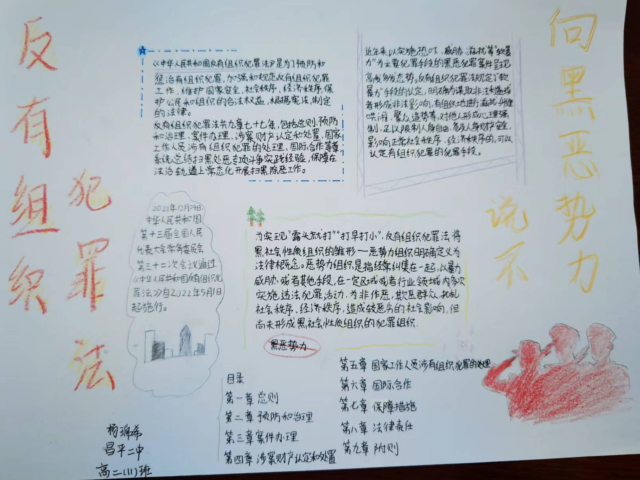 反有组织
犯罪法
向黑恶势力
说不
《中华人民共和国反有组织犯罪法》是为了预防和
惩治有组织犯罪,加强和规范反有组织犯罪
工作,维护国家安全、社会秩序、经济秩序,保
护公民和组织的合法权益,根据宪法,制定
的法律。
反有组织犯罪法共九章七十七条,包括总则、预防
和治理、案件办理、涉案财产认定和处置、国家
工作人员涉有组织犯罪的处理、国际合作等
系统总结扫黑除恶专项斗争实践经验,保障在
法治轨道上常态化开展扫黑除恶工作。
近年来,以实施
为主要犯罪手段的黑恶犯罪案件呈现
高发多发态势。反有组织犯罪法规定了"软
暴力"手段的认定,
哄闹、聚众造势等,对他人形成心理强
制,足以限制人身自由、危及人身财产安全,
影响正常社会秩序、经济秩序的,可以
认定有组织犯罪的犯罪手段。
2021年12月24日
中华人民共和国
第十三届全国人民
代表大会常务委员会
第三十二次会议通过
《中华人民共和国反有组织犯
罪法》自2022年5月1日
起施行。
为实现"露头就打""打早打小",反有组织犯罪法将
黑社会性质组织的雏形—恶势力组织明确定义为
法律概念。恶势力组织,是指经常纠集在一起,以暴力
威胁或者其他手段,在一定区域或者行业领域内多次
实施违法犯罪活动,为非作恶,欺压群众,扰乱
社会秩序、经济秩序,造成较恶劣的社会影响,但
尚未形成黑社会性质组织的犯罪组织.
黑恶势力
目录
第一章 总则
第二章 预防和治理
第三章 案件办理
第四章 涉案财产认定和处置
第五章 国家工作人员涉有组织犯罪的处理
第六章 国际合作
第七章 保障措施
第八章 法律责任
第九章 附则
昌平二中
高二(11)班